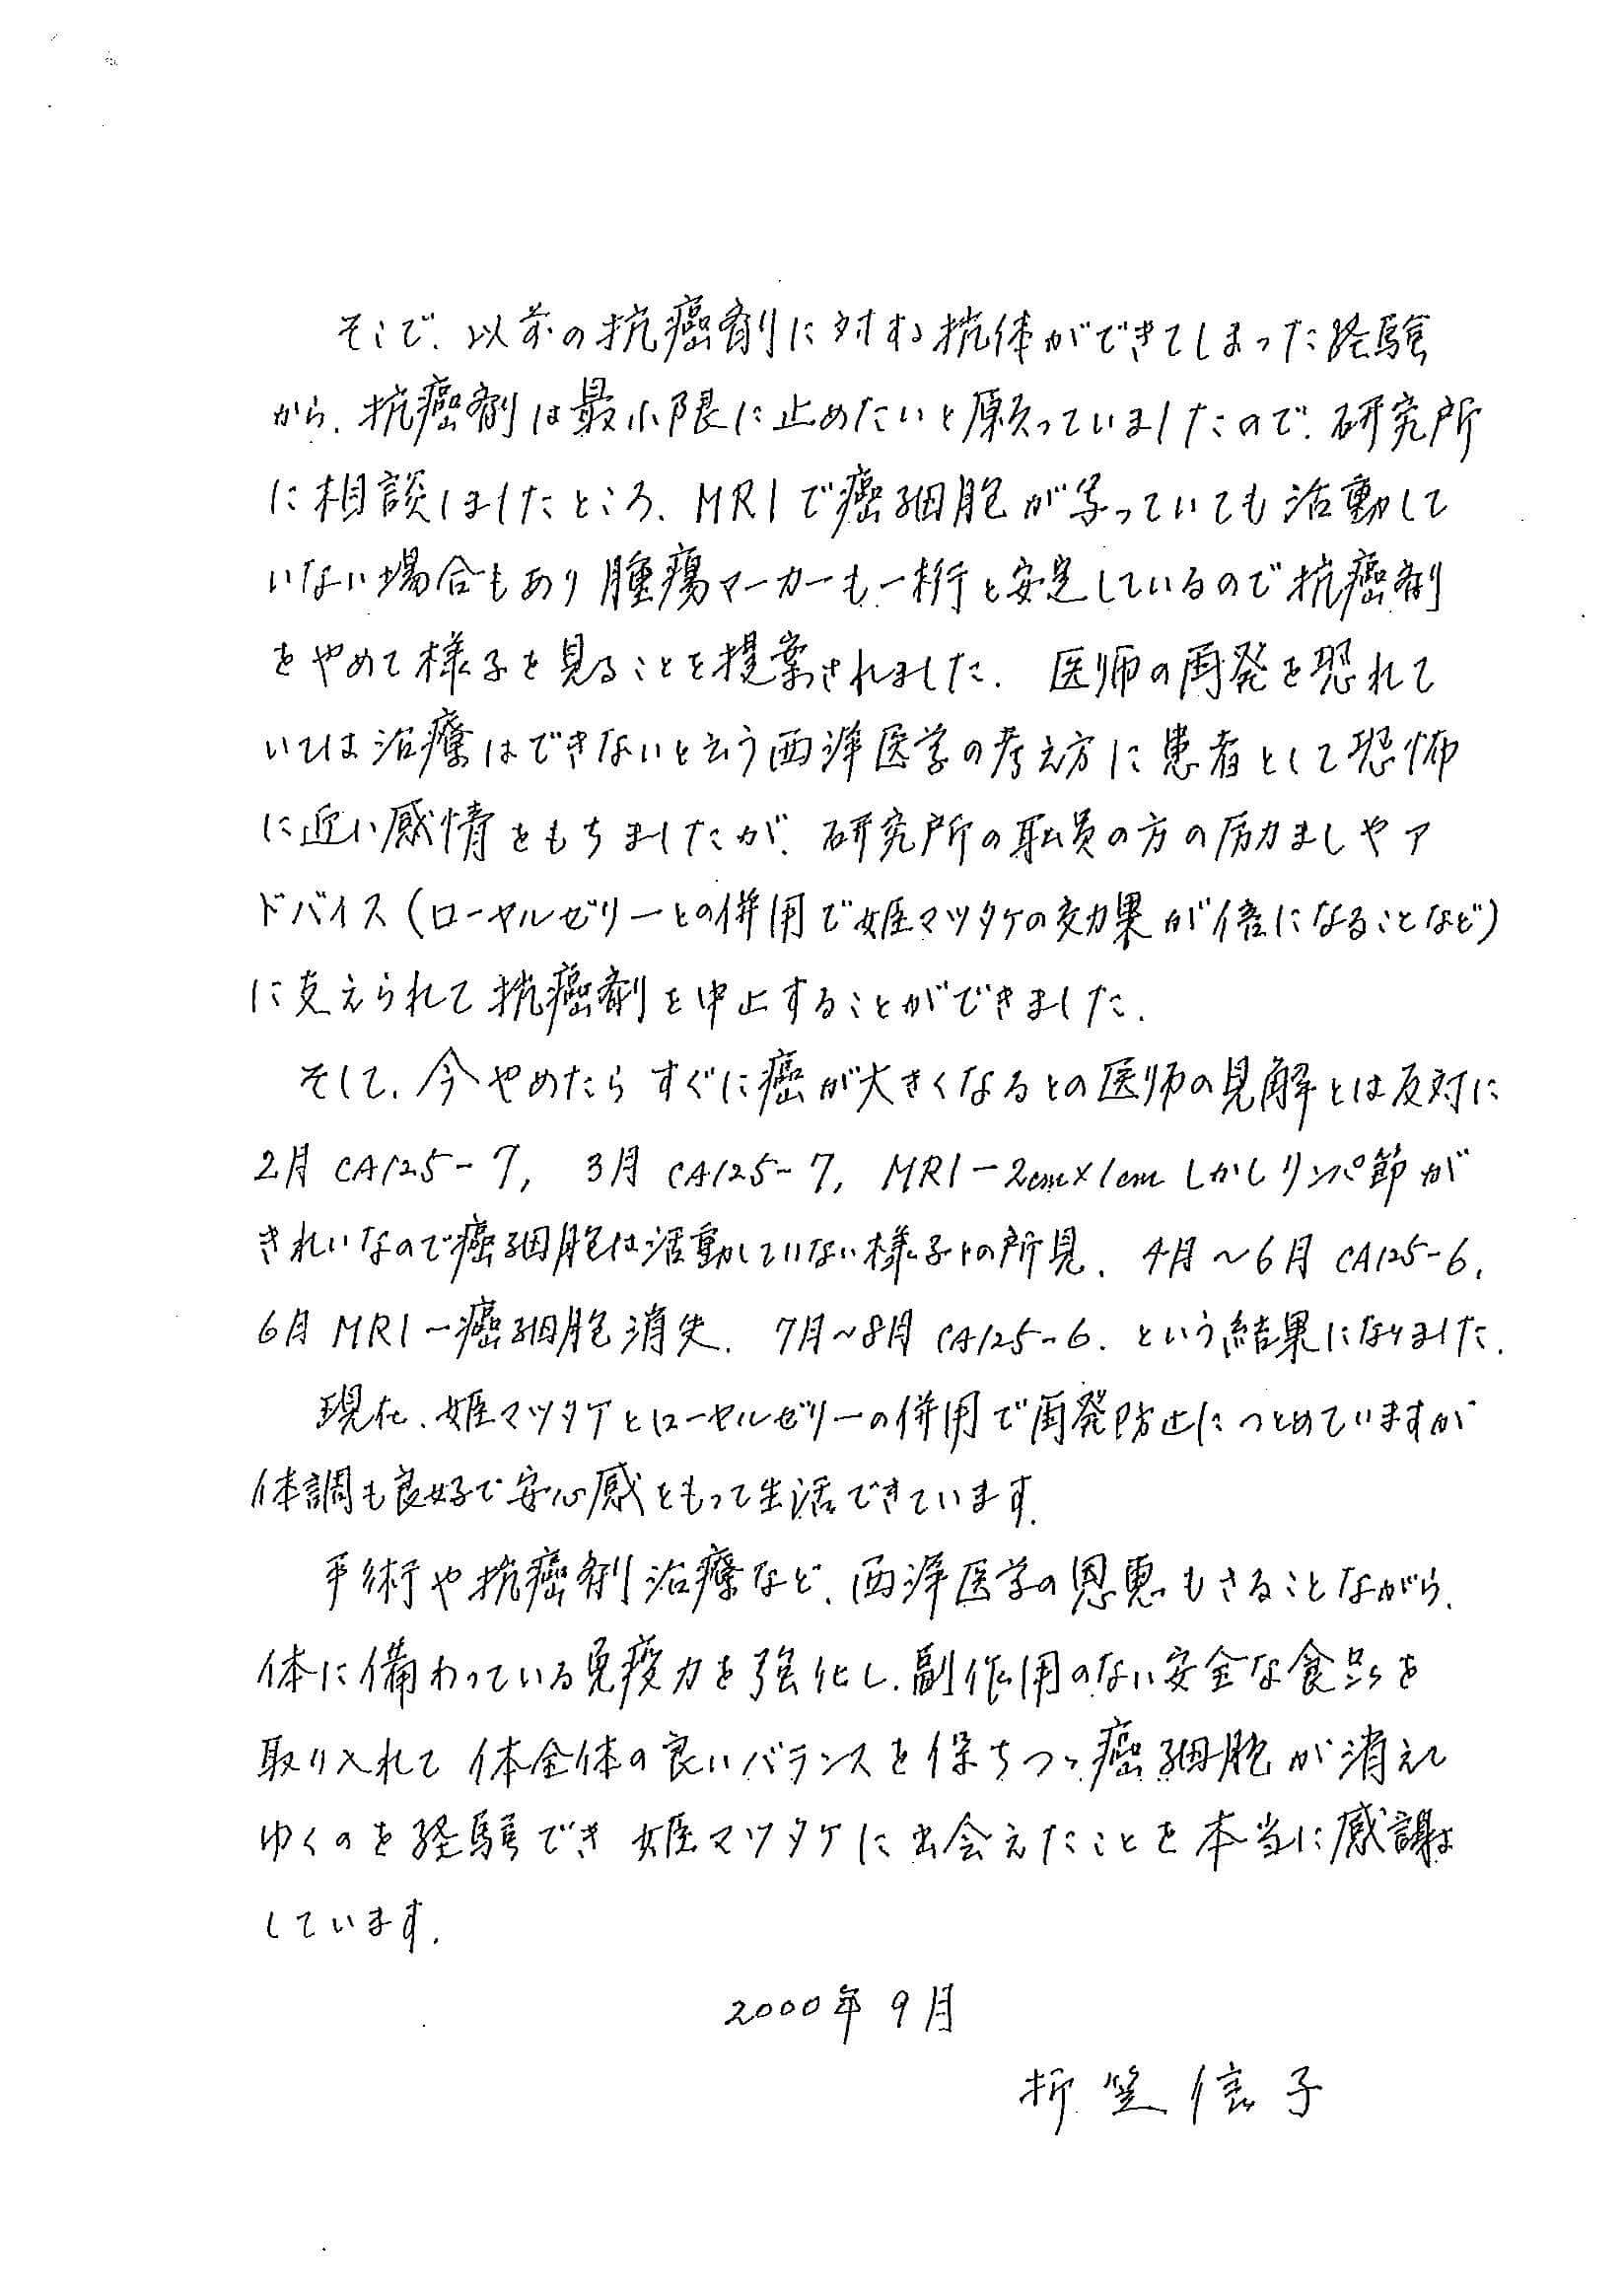 そこで、以前の抗癌剤に対する抗体ができてしまった経験
から、抗癌剤は最小限に止めたいと願っていましたので、研究所
に相談しましたところ、MRIで癌細胞が写っていても活動して
いない場合もあり腫瘍マーカーも一桁と安定しているので抗癌剤
をやめて様子を見ることを提案されました. 医師の再発を恐れて
いては治療はできないと云う西洋医学の考え方に患者として恐怖
に近い感情をもちましたが、研究所の職員の方の励ましやア
ドバイス(ローヤルゼリーとの併用で姫マツタケの効果が倍になることなど)
に支えられて抗癌剤を中止することができました.
そして、今やめたらすぐに癌が大きくなるとの医師の見解とは反対に
2月 CA125-7, 3月 CA125-7, MRI-2cm×1cm しかしリンパ節が
きれいなので癌細胞は活動していない様子との所見. 4月~6月 CA125-6,
6月 MRI-癌細胞消失. 7月~8月 CA125-6. という結果になりました.
現在、姫マツタケとローヤルゼリーの併用で再発防止につとめていますが
体調も良好で安心感をもって生活できています.
手術や抗癌剤治療など、西洋医学の恩恵もさることながら、
体に備わっている免疫力を強化し、副作用のない安全な食品を
取り入れて体全体の良いバランスを保ちつつ癌細胞が消えて
ゆくのを経験でき姫マツタケに出会えたことを本当に感謝
しています.
2000年 9月
折笠信子